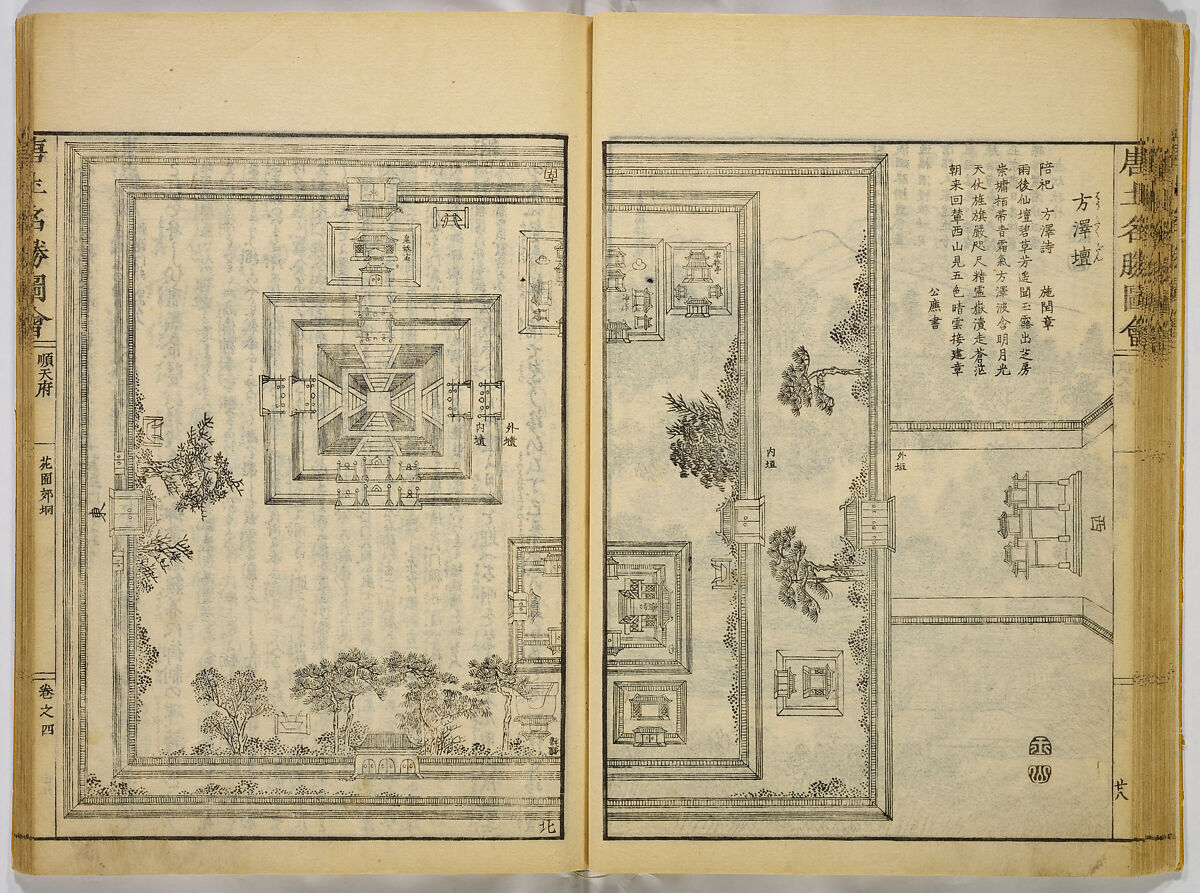 唐土名勝圖會
廿八
方澤壇
陪祀　方澤詩　施閏章
雨後仙壇碧草芳遥聞玉露出芝房
崇墉栢帶青霜氣方澤波含明月光
天仗旌旗嚴咫尺精靈嶽瀆走蒼茫
朝来回輦西山見五色晴雲接建章
公 書
西
外垣
内垣
宰牲亭
南
北
外壝
内壝
東
唐土名勝圖會
順天府
苑囿郊坰
巻之四